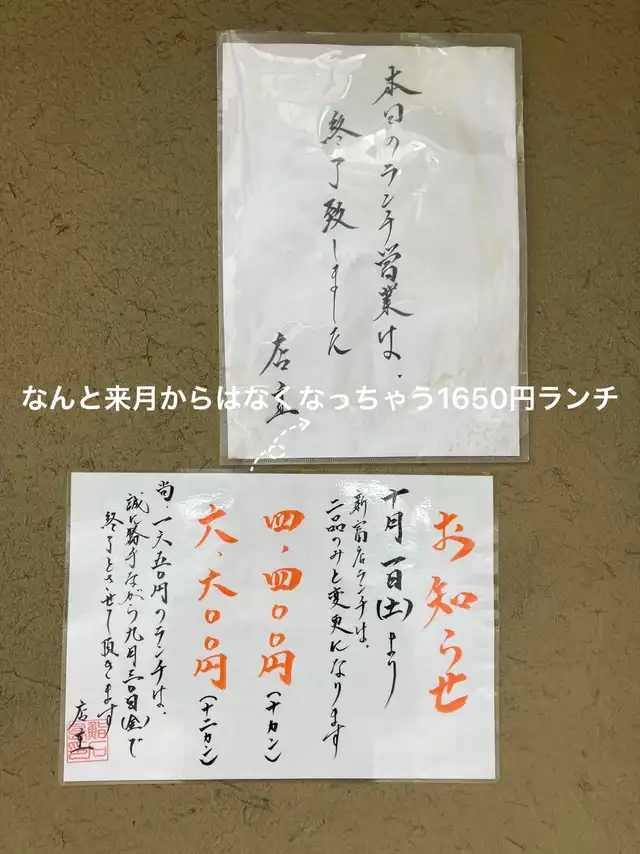 本日のランチ営業は、
終了致しました
店主
なんと来月からはなくなっちゃう1650円ランチ
お知らせ
十月一日(土)より
新宿店ランチは、
二品のみと変更になります
四、四〇〇円(十カン)
六、六〇〇円(十二カン)
尚、一六五〇円のランチは、
誠に勝手ながら九月三〇日(金)で
終了とさせて頂きます
店主